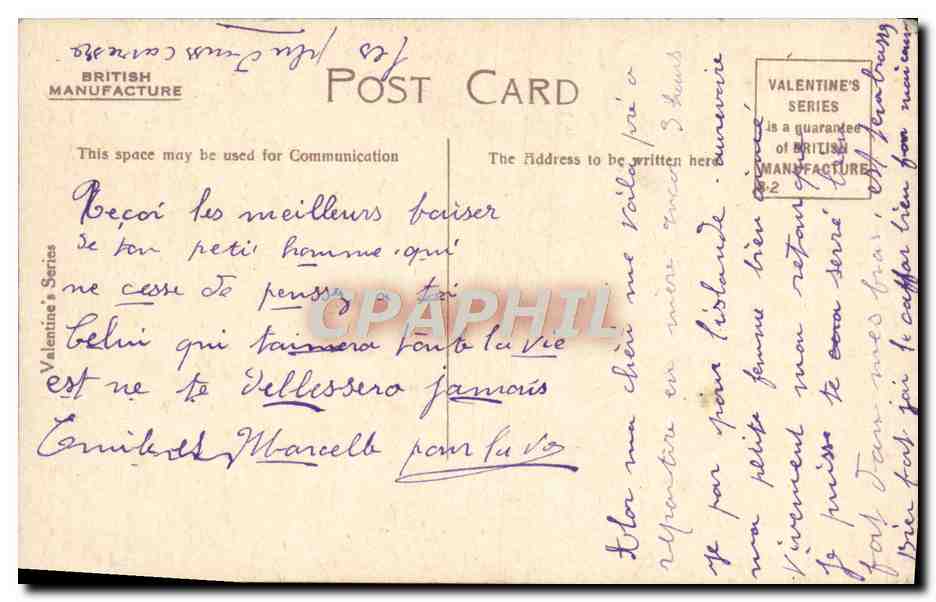 les plus doux caresse
BRITISH
MANUFACTURE
POST CARD
VALENTINE'S
SERIES
is a guarantee
of BRITISH
MANUFACTURE
This space may be used for Communication
The Address to be written here
Valentine's Series
Reçoi les meilleurs baiser
de ton peti homme qui
ne cesse de pensser a toi
Celui qui taimera toute la vie
est ne te dellessera jamais
Marcelle pour la vie
CPAPHIL
Alor ma cheri me voila pré a
repartire en mere encor 3 heurs
je par pour l'islande aurevoire
ma petite femme bien aimé
Vivement mon retour que
je puisse te serré bien
fort dans mes bras, est tembrasse
Bien fort jai le caffar bien